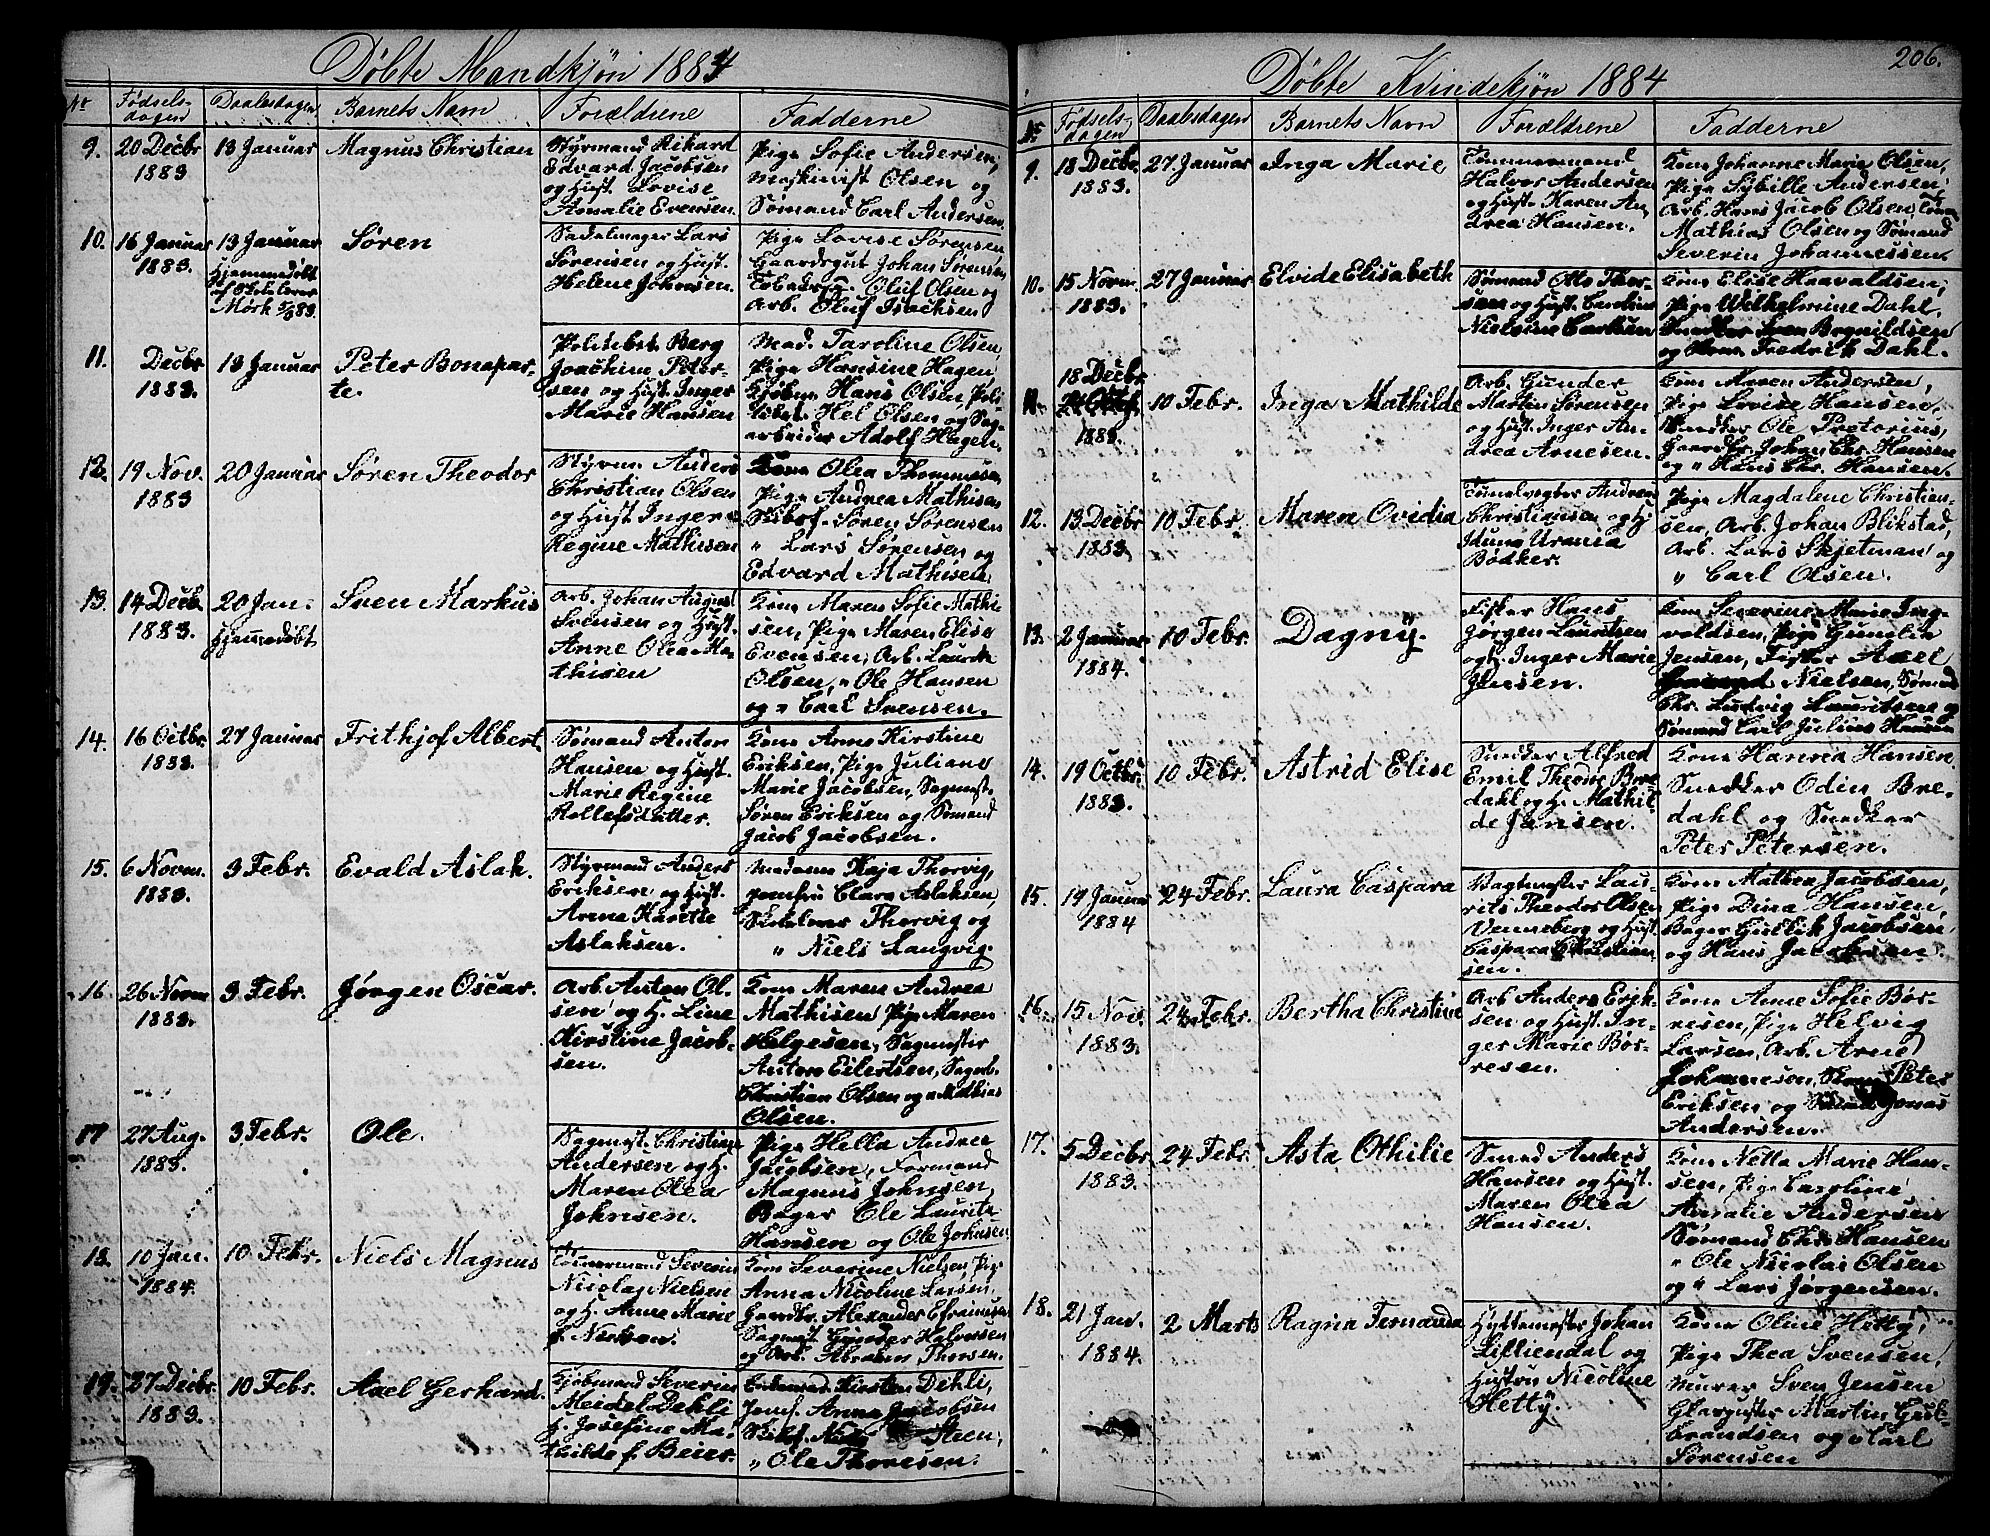 Døbte Mandkjøn 1884
No
Fødsels-
dagen
Daabsdagen
Barnets Navn
Forældrene
Fadderne
9.
20 Decbr
1883
13 Januar
Magnus Christian
Styrmand Rikard
Edvard Jacobsen
og Hust. Lovise
Amalie Evensen.
Pige Sofie Andersen,
Maskinist Olsen og
Sømand Carl Andersen.
10.
16 Januar
1883.
13 Januar
Hjemmedøbt
Mørk 5/8 83.
Søren
Sadelmager Lars
Sørensen og Hust.
Helene Johnsen.
Pige Lovise Sørensen,
Gaardsgut Johan Sørensen
Oluf Olsen og
Arb. Oluf Isachsen
11.
Decbr
1883.
13 Januar
Peter Bonapar-
te.
Politibet. Berg
Joachim Peter-
sen og Hust. Inger
Marie Hansen
Mad. Caroline Olsen,
Pige Hansine Hagen
Kjøbm. Hans Olsen, Poli-
tibet. Hel Olsen og Sag-
arbeider Adolf Hagen.
12.
19 Nov.
1883
20 Januar
Søren Theodor
Styrm. Anders
Christian Olsen
og Hust Inger
Regine Mathisen
Kone Olea Thommesen,
Pige Andrea Mathisen
Skibsf. Søren Sørensen
" Lars Sørensen og
Edvard Mathisen.
13.
14 Decb.
1883.
20 Jan.
Hjemmedøbt
Sven Markus
Arb. Johan August
Svensen og Hust.
Anne Olea Ma-
thisen
Kone Maren Sofie Mathi-
sen, Pige Maren Elise
Evensen, Arb. Laurits
Olsen, " Ole Hansen
og " Carl Svensen.
14.
16 Octbr.
1883.
27 Januar
Frithjof Albert
Sømand Anton
Hansen og Hust.
Marie Regine
Rollefsdatter.
Kone Anne Kirstine
Eriksen, Pige Juliane
Marie Jacobsen, Sagmest.
Søren Eriksen og Sømand
Jacob Jacobsen.
15.
6 Novem.
1883.
3 Febr.
Evald Aslak.
Styrmand Anders
Eriksen og Hust.
Anna Karette
Aslaksen.
Madam Kaja Thorvig,
Jomfru Clara Aslaksen,
Thorvig og
" Niels Langvig.
16
26 Novm
1883.
3 Febr.
Jørgen Oscar.
Arb. Anton Ol-
sen og H. Line
Kirstine Jacob-
sen.
Kone Maren Andrea
Mathisen Pige Maren
Helgesen, Sagmester
Anton Eilertsen, Sagarb.
Christian Olsen og " Mathias
Olsen.
17
27 Aug.
1883.
3 Febr.
Ole.
Sagmest. Christian
Andersen og H.
Maren Olea
Johnsen.
Pige Hella Andrea
Jacobsen, Formand
Magnus Johnsen,
Bager Ole Lauritz
Hansen og Ole Johnsen
18.
10 Jan.
1884.
10 Febr.
Niels Magnus
Tømmermand Severin
Nicolay Nielsen
og H. Anne Marie
f. Nielsen.
Kone Severine Nielsen, Pige
Anna Nicoline Larsen,
Gaardbr. Alexander Efraimsen
Sagmest. Gunder Halvorsen
og Arb. Abraham Thorsen.
19.
27 Decbr.
1883.
10 Febr.
Axel Gerhard.
Kjøbmand Severin
Meidel Dehli
H. Josefine Ma-
thilde f. Beier.
Kirsten Dehli,
Jomf. Anna Jacobsen
Skibsf. Niels Steen,
" Ole Thoresen.
206.
Døbte Kvindekjøn 1884
No
Fødsels-
dagen
Daabsdagen
Barnets Navn
Forældrene
Fadderne
9.
18 Decbr.
1883.
27 Januar
Inga Marie
Tømmermand
Halvor Andersen
og Hust. Karen An-
drea Hansen.
Kone Johanne Marie Olsen,
Pige Sybille Andersen,
Arb. Hans Jacob Olsen,
Mathias Olsen og Sømand
Severin Johannessen.
10.
15 Novm.
1883.
27 Januar
Elvide Elisabeth
Sømand Otto Thor-
sen og Hust. Caroline
Nielsine Carlsen
Kone Elise Haavaldsen,
Pige Wilhelmine Dahl.
Snedker Sven Bognildsen
og Fredrik Dahl.
11.
18 Decbr
1883.
10 Febr.
Inga Mathilde
Arb. Gunder
Martin Sørensen
og Hust. Inger An-
drea Arnesen.
Kone Maren Andersen,
Pige Lovise Hansen,
Snedker Ole Pretorius,
Gaardbr. Johan Chr. Hansen
og " Hans Chr. Hansen.
12.
13 Decbr
1883.
10 Febr.
Maren Ovidia
Andreas
Christiansen og H.
Iduna Urania
Bødker.
Pige Magdalene Christian-
sen, Arb. Johan Blikstad,
Arb. Lars Skjetman og
" Carl Olsen.
13.
2 Januar
1884.
10 Febr.
Dagny.
Fisker Hans
Jørgen Lauritsen
og H. Inger Marie
Jensen.
Kone Severine Marie Ing-
voldsen, Pige Gunelia
Jensen, Fisker Axel
Nielsen, Sømand
Chr. Ludvig Lauritsen og
Sømand Carl Julius Hansen
14.
19 Octbr.
1883.
10 Febr.
Astrid Elise
Snedker Alfred
Emil Theodor Bre-
dahl og H. Mathil-
de Jansen.
Kone Hanna Hansen.
Snedker Odin Bre-
dahl og Snedker
Peter Petersen.
15.
19 Januar
1884
24 Febr.
Laura Caspara
Vagtmester Lau-
rits Theodor Olsen
Venneberg og Hust
Caspara Christian-
sen.
Kone Mathea Jacobsen,
Pige Dina Hansen,
Bager Gullik Jacobsen
og Hans Jacobsen.
16.
15 Nov.
1883.
24 Febr.
Bertha Christine
Arb Anders Erik-
sen og Hust. In-
ger Marie Bør-
resen.
Kone Anne Sofie Bør-
resen, Pige Helvig
Larsen, Arb. Arne
Johannesen, Peter
Eriksen og Jonas
Andersen.
17.
5 Decbr.
1883.
24 Febr.
Asta Othilie
Smed Anders
Hansen og Hust.
Maren Olea
Hansen.
Kone Nella Marie Han-
sen, Pige Caroline
Amalie Andersen
Sømand Chr. Hansen
" Ole Nicolai Olsen
og " Lars Jørgensen.
18.
21 Jan.
1884.
2 Marts
Ragna Fernanda
Hyttemester Johan
Lilliendal og
Hustru Nicoline
Hetty.
Kone Oline Hetty,
Pige Thea Svensen,
Murer Sven Jensen
Glasmester Martin Gul-
brandsen og Carl
Sørensen